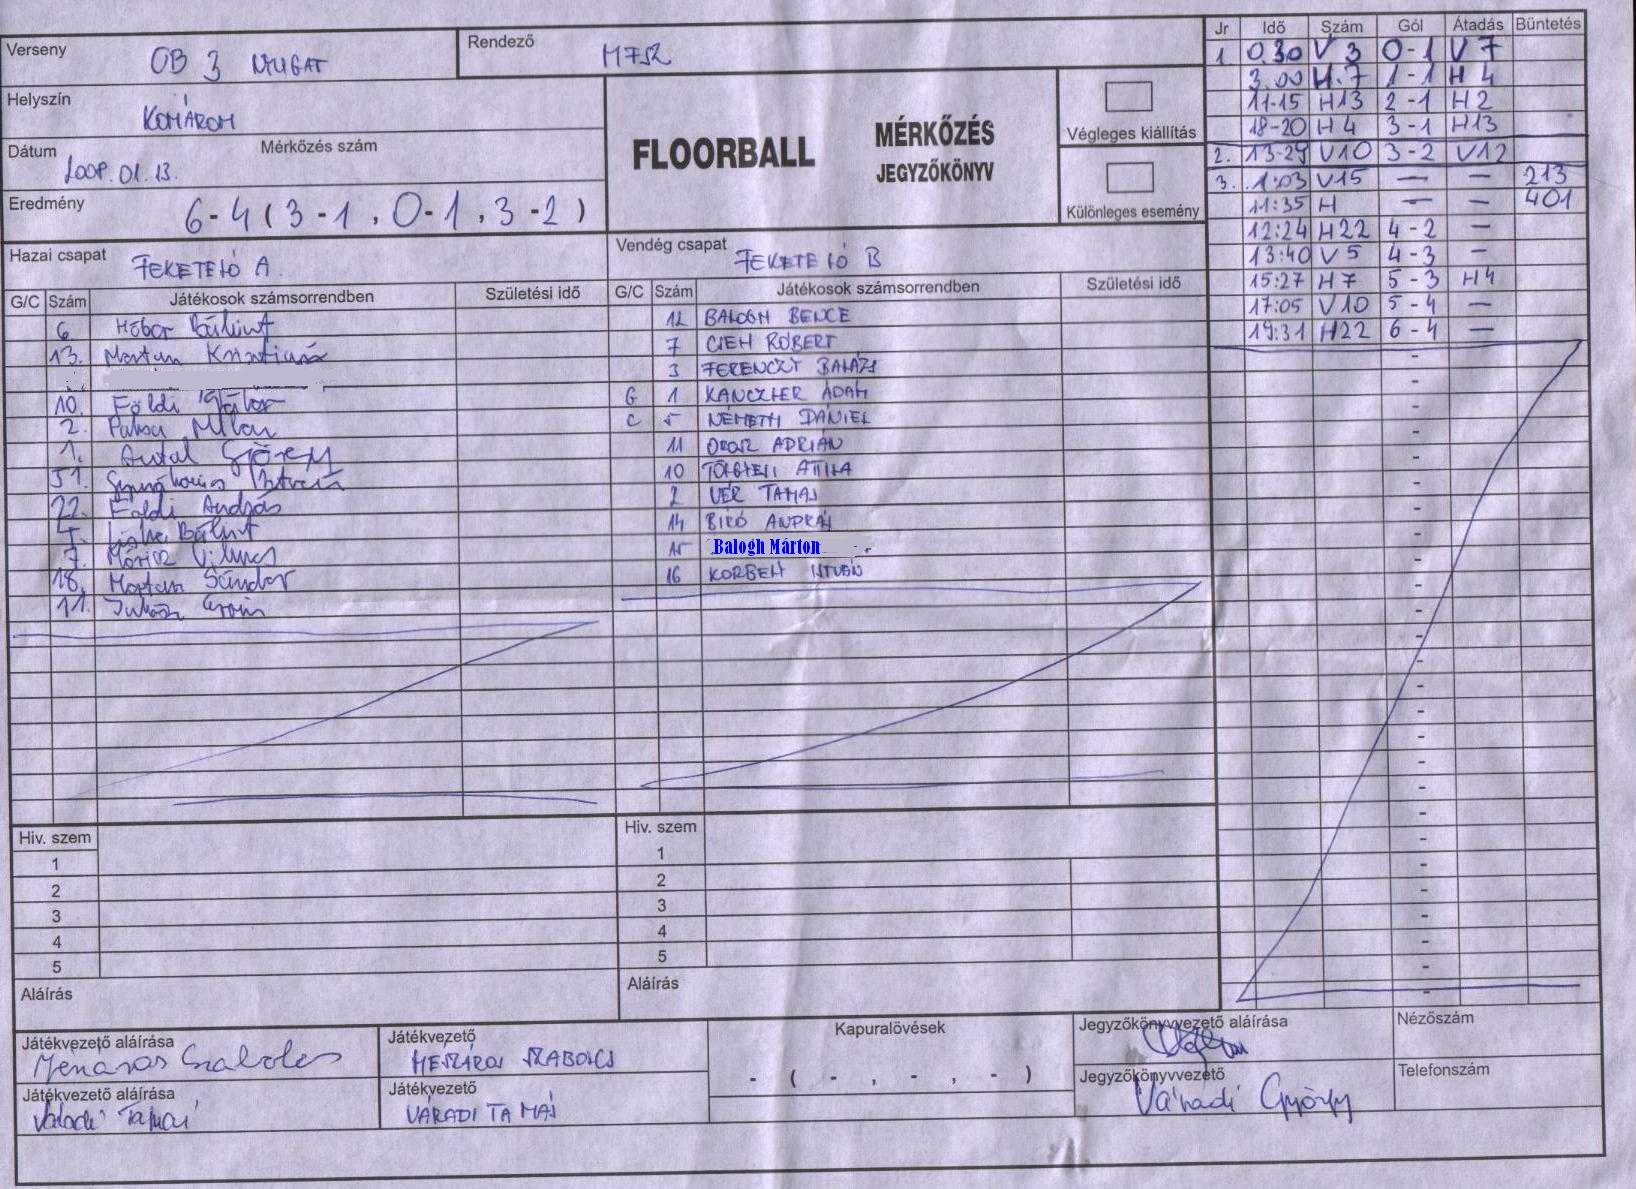 Verseny OB 3 NYUGAT
Rendező
Helyszín KOMÁROM
Dátum 2008.01.13.
Mérkőzés szám
Eredmény 6-4 (3-1, 0-1, 3-2)
FLOORBALL
MÉRKŐZÉS
JEGYZŐKÖNYV
Végleges kiállítás
Különleges esemény
Hazai csapat FEKETE LÓ A
G/C Szám Játékosok számsorrendben Születési idő
6. Bálint
13.
10. Földi Gábor
2. Milán
1. Antal
51.
22. Földi András
Bálint
7. Móricz Vilmos
18. Sándor
11.
Vendég csapat FEKETE LÓ B
G/C Szám Játékosok számsorrendben Születési idő
12 BALOGH BENCE
7 CIEH RÓBERT
3 FERENCZY BALÁZS
G 1 KANCZLER ÁDÁM
C 5 NÉMETH DÁNIEL
11 OROSZ ADRIÁN
10 ATTILA
2 VÉR TAMÁS
14 BIRÓ ANDRÁS
15 Balogh Márton
16 KORBELY ISTVÁN
Jr Idő Szám Gól Átadás Büntetés
1 0.30 V 3 0-1 V 7
3.00 H.7 1-1 H 4
11-15 H13 2-1 H2
18-20 H4 3-1 H13
2. 13-29 V10 3-2 V12
3. 1:03 V15 — — 213
11:35 H — — 401
12:24 H22 4-2 —
13:40 V5 4-3 -
15:27 H7 5-3 H4
17:05 V10 5-4 —
19:31 H22 6-4 —
Hiv. szem
1
2
3
4
5
Aláírás
Hiv. szem
1
2
3
4
5
Aláírás
Játékvezető aláírása Mészáros Szabolcs
Játékvezető MÉSZÁROS SZABOLCS
Játékvezető aláírása Váradi Tamás
Játékvezető VÁRADI TAMÁS
Kapuralövések
- ( - , - , - )
Jegyzőkönyvvezető aláírása
Jegyzőkönyvvezető Váradi György
Nézőszám
Telefonszám